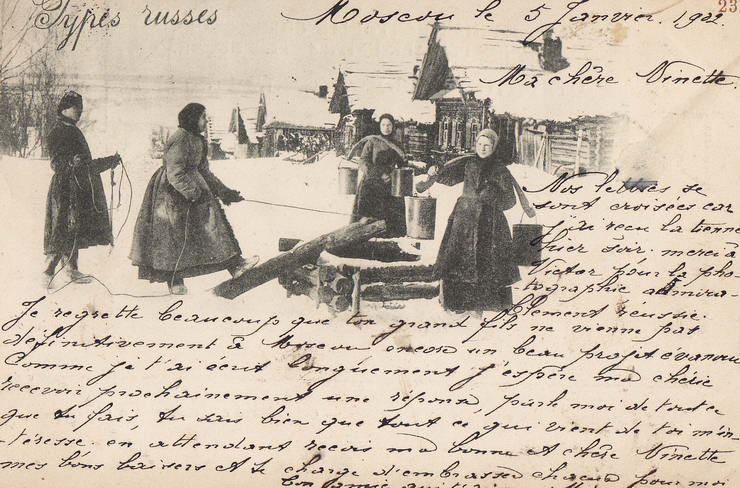 Types russes
23
Moscou le 5 Janvier. 1902.
Ma chère Ninette.
Nos lettres se
sont croisées car
j'ai reçu la tienne
hier soir. merci à
Victor pour la pho-
tographie admira-
blement réussie.
Je regrette beaucoup que ton grand fils ne vienne pas
définitivement à Moscou encore un beau projet évanoui
Comme je t'ai écrit longuement j'espère ma chérie
recevoir prochainement une réponse, parle moi de tout ce
que tu fais, tu sais bien que tout ce qui vient de toi m'in-
téresse. en attendant reçois ma bonne et chère Ninette
mes bons baisers et te charge d'embrasser chacun pour moi
Ton amie